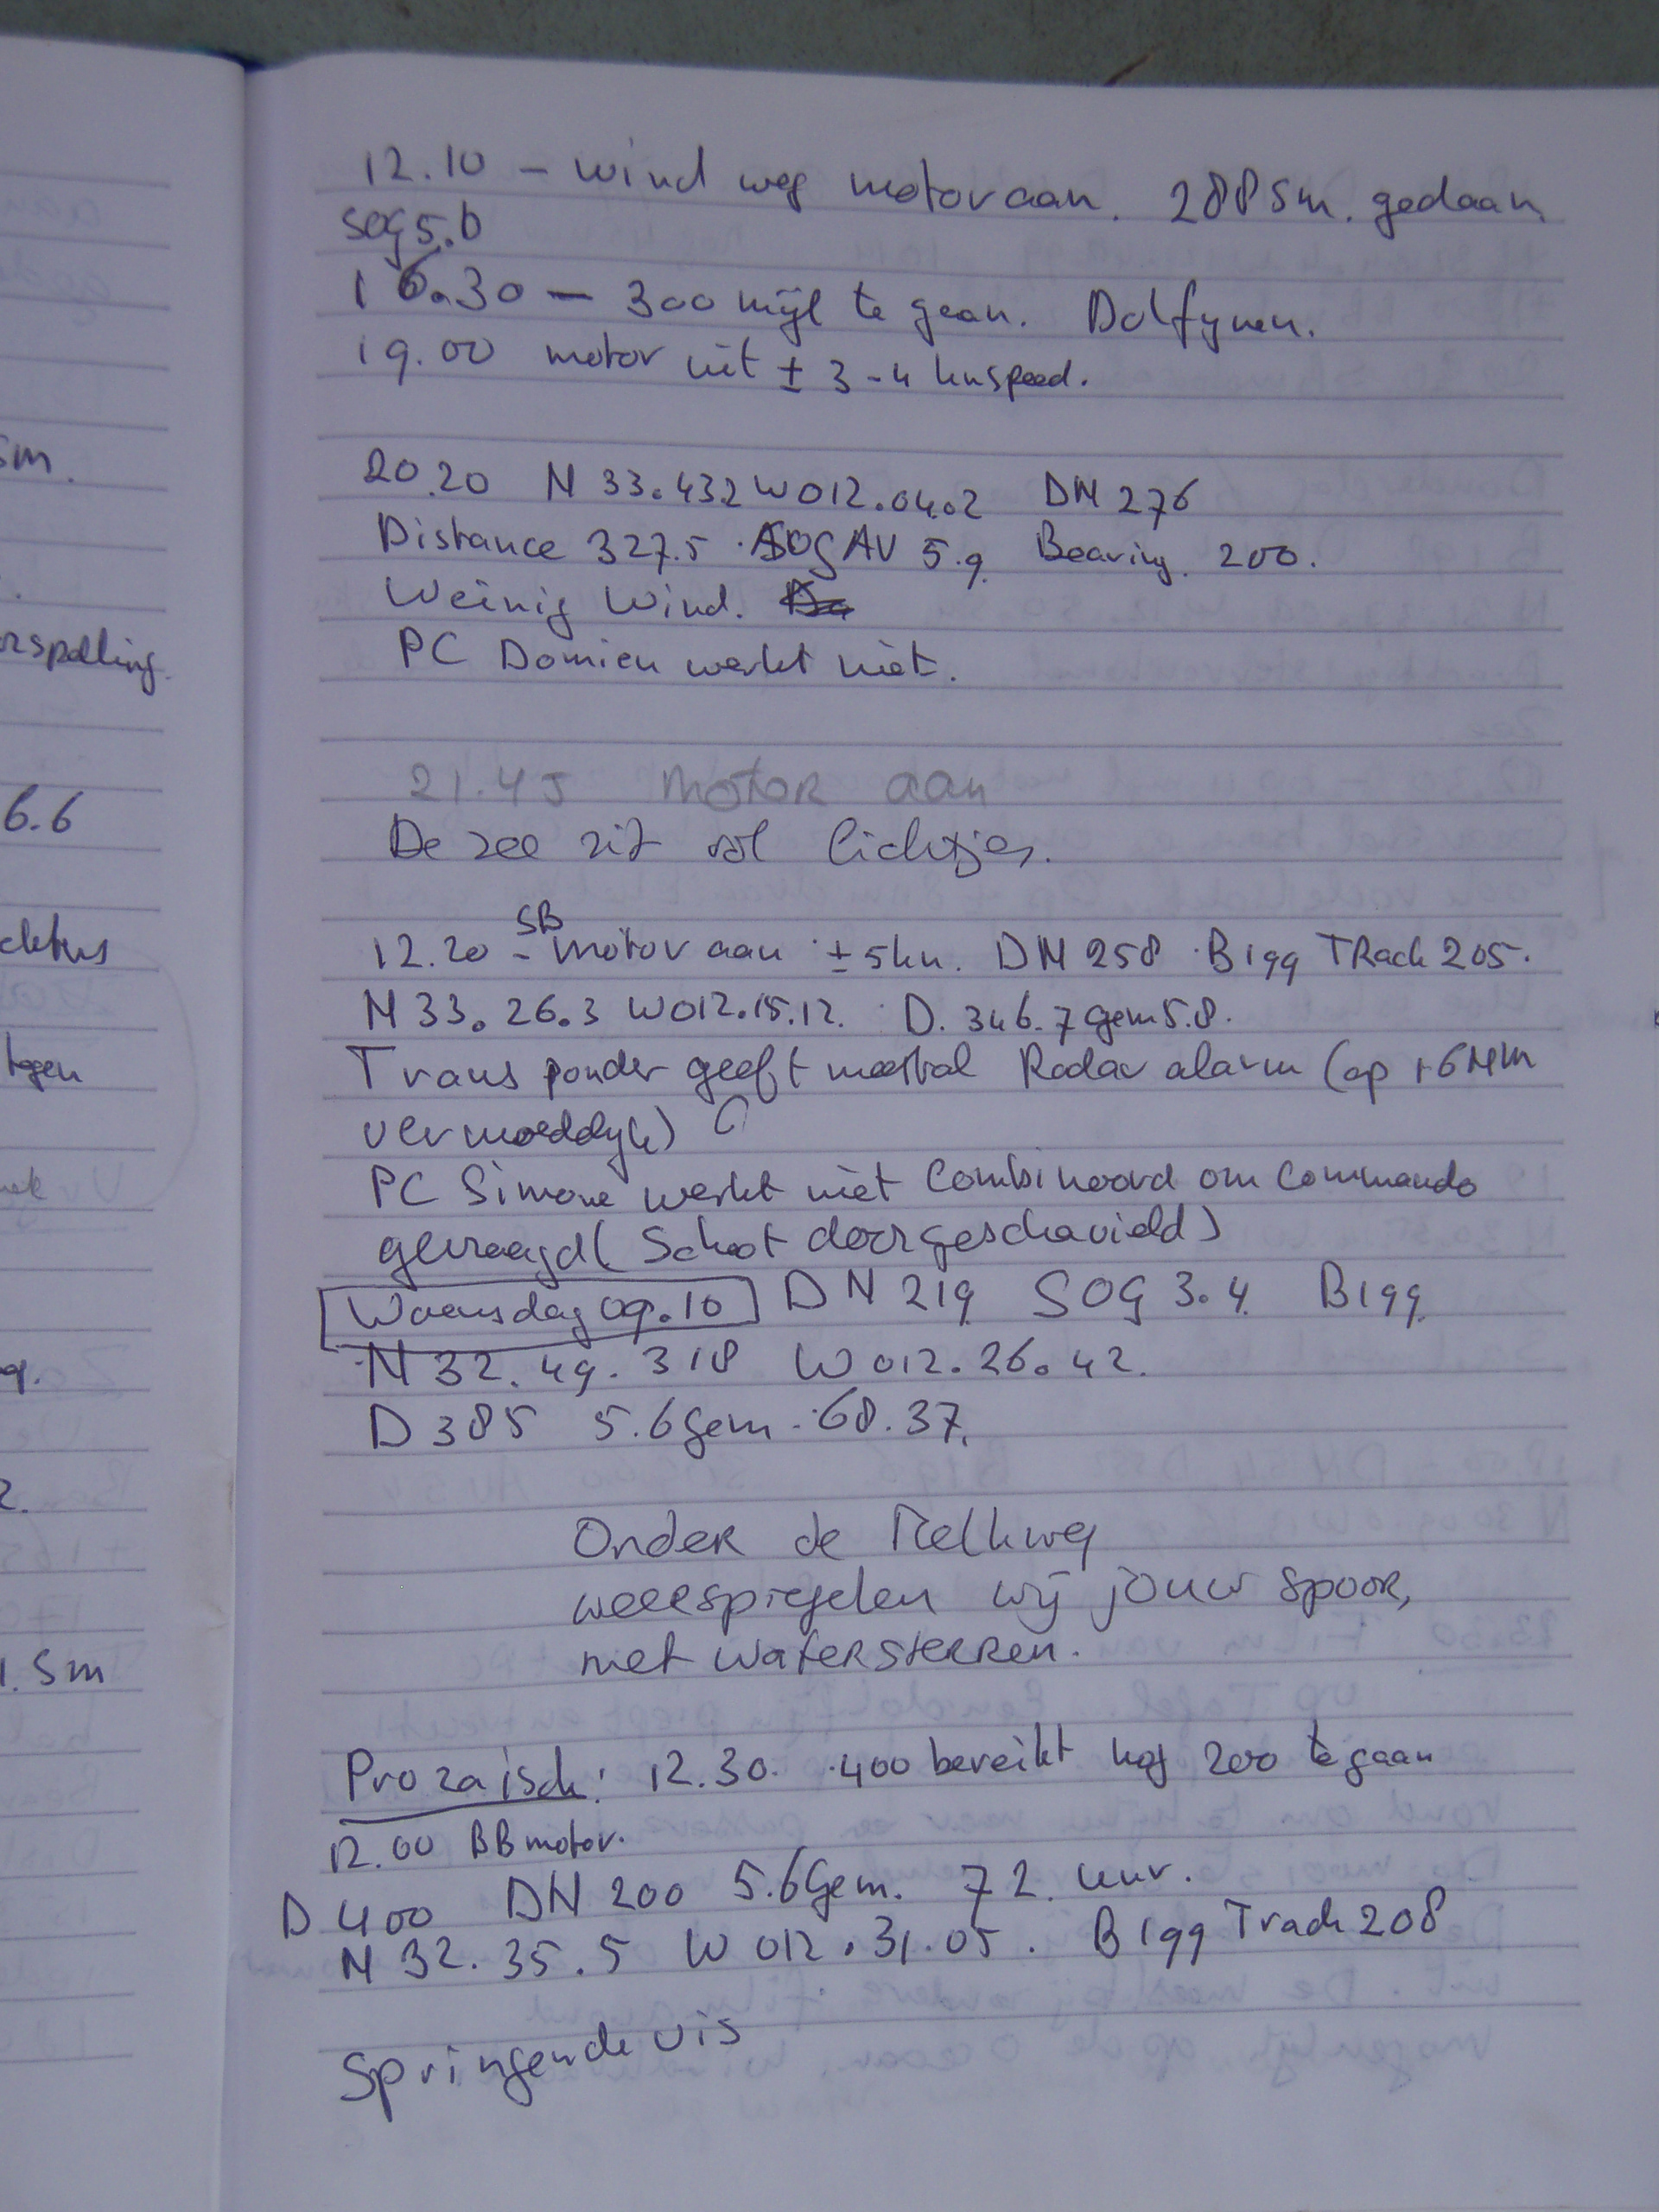 12.10 - wind weg motor aan. 288 sm. gedaan
sog 5.6
16.30 - 300 mijl te gaan. Dolfynen.
19.00 motor uit ± 3-4 kn speed.
20.20 N 33.432 W012.04.2 DN 276
Distance 327.5 . SOG AV 5.9. Bearing. 200.
Weinig Wind.
PC Domien werkt niet.
21.45 MOTOR aan
De zee zit vol lichtjes.
12.20 - SB motor aan ± 5kn. DN 258 . B199 TRack 205.
N 33. 26.3 W012.15.12. D. 346.7 gem 5.8.
Transponder geeft meestal Radar alarm (op ±6NM
vermoedelyk)
PC Simone werkt niet Combinoord om Commando
gevraagd (Schoot doorgeschavield)
Woensdag 09.10 DN 219 SOG 3.4. B199.
N 32. 49. 318 W 012. 26. 42.
D 385 5.6 gem - 68. 37.
Onder de Melkweg
weerspiegelen wij jouw spoor,
met watersterren.
sm.
rspelling.
6.6
ctus
tegen
9.
2.
1. Sm
Prozaisch: 12.30. .400 bereikt nog 200 te gaan
12.00 BB motor.
D 400 DN 200 5.6 Gem. 72. uur.
N 32. 35. 5 W 012. 31. 05. B 199 Track 208
Springende vis